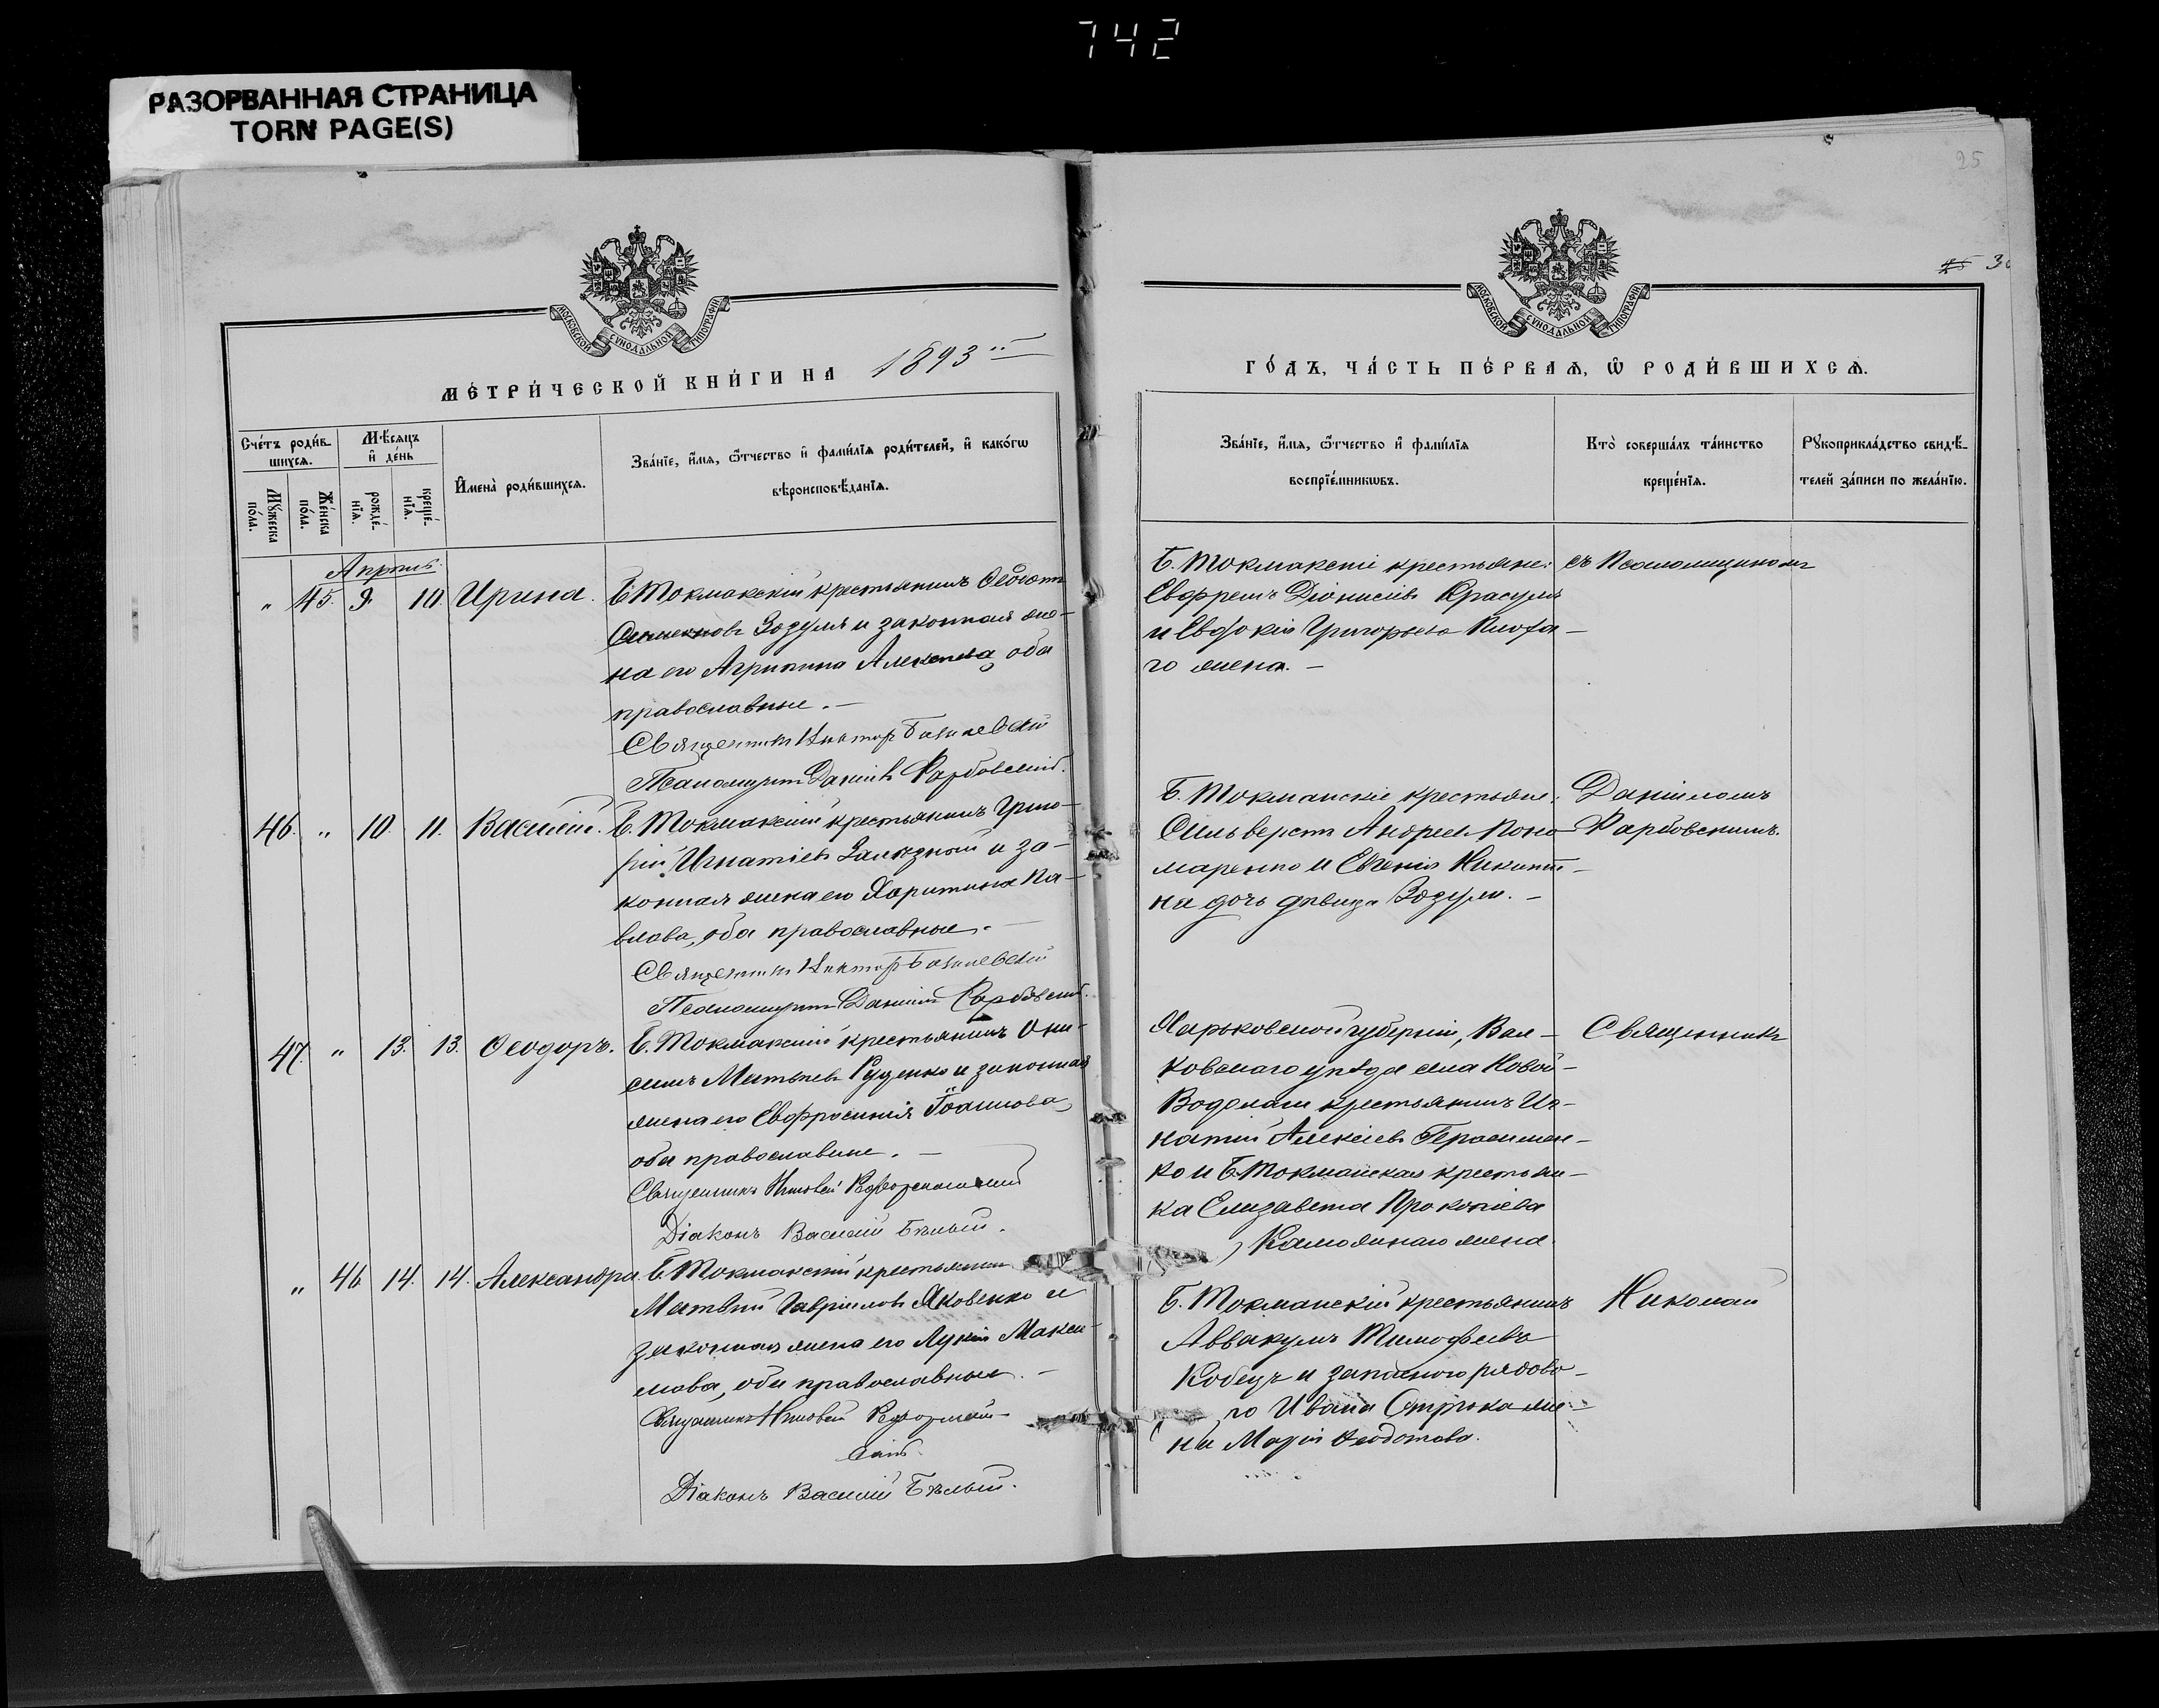 742
РАЗОРВАННАЯ СТРАНИЦА
TORN PAGE(S)
25
25 30
МОСКОВСКОЙ СѴНОДАЛЬНОЙ ТИПОГРАФІИ
МОСКОВСКОЙ СѴНОДАЛЬНОЙ ТИПОГРАФІИ
МЕТРИ́ЧЕСКОЙ КНИ́ГИ НА 1893
ГО́ДЪ, ЧА́СТЬ ПЕ́РВАѦ, Ѡ҆ РОДИ́ВШИХСѦ.
Сче́тъ роди́в-
шихсѧ.
Мꙋ́жеска по́ла.
Же́нска по́ла.
Мѣ́сѧцъ и҆ де́нь
рожде́-нїѧ.
креще́-нїѧ.
И҆мена̀ роди́вшихсѧ.
Зва́нїе, и҆́мѧ, ѻ҆́тчество и҆ фами́лїѧ роди́телей, и҆ како́гѡ
вѣроисповѣ́данїѧ.
Зва́нїе, и҆́мѧ, ѻ҆́тчество и҆ фами́лїѧ
воспрїе́мникѡвъ.
Кто̀ соверша́лъ та́инство
креще́нїѧ.
Рꙋкоприкла́дство свидѣ́-
телей за́писи по жела́нїю.
Апрѣль.
" 45. 9. 10. Ирина. Б. Токмакскій крестьянинъ Ѳеодотъ
Симеоновъ Зозуля и законная же-
на его Агрипина Алексѣева, оба
православные. —
Священникъ Викторъ Базилевскій
Псаломщикъ Даніилъ Фарбовскій.
Б. Токмакскіе крестьяне:
Евфремъ Діонисіевъ Красуля
и Евдокія Григорьева
го жена. —
съ Псаломщикомъ
46. " 10. 11. Василій. Б. Токмакскій крестьянинъ Григо-
рій Игнатіевъ Зализный и за-
конная жена его Харитина Па-
влова, оба православные. —
Священникъ Викторъ Базилевскій
Псаломщикъ Даніилъ Фарбовскій.
Б. Токмакскіе крестьяне:
Сильверстъ Андреевъ Поно-
маренко и Евгенія Никити-
на дочь дѣвица Зозули. —
Даніиломъ
Фарбовскимъ.
47. " 13. 13. Ѳеодоръ. Б. Токмакскій крестьянинъ Они-
симъ Матвѣевъ Руденко и законная
жена его Евфросинія Іоаннова,
оба православные. —
Священникъ
Діаконъ Василій Бѣлый.
Харьковской губерніи, Вал-
ковскаго уѣзда села Новой-
Водолаги крестьянинъ Иг-
натій Алексіевъ Герасимен-
ко и Б. Токмакская крестьян-
ка Елизавета Прокопіева
жена.
Священникъ
" 46 14. 14. Александра. Б. Токмакскій крестьянинъ
Матвѣй Гавріиловъ Яковенко и
законная жена его Лукія Макси-
мова, оба православные. —
Священникъ
скій.
Діаконъ Василій Бѣлый.
Б. Токмакскій крестьянинъ
Аввакумъ Тимофеевъ
Кобецъ и запаснаго рядово-
го Ивана жe-
на Марія Ѳеодотова.
Николай